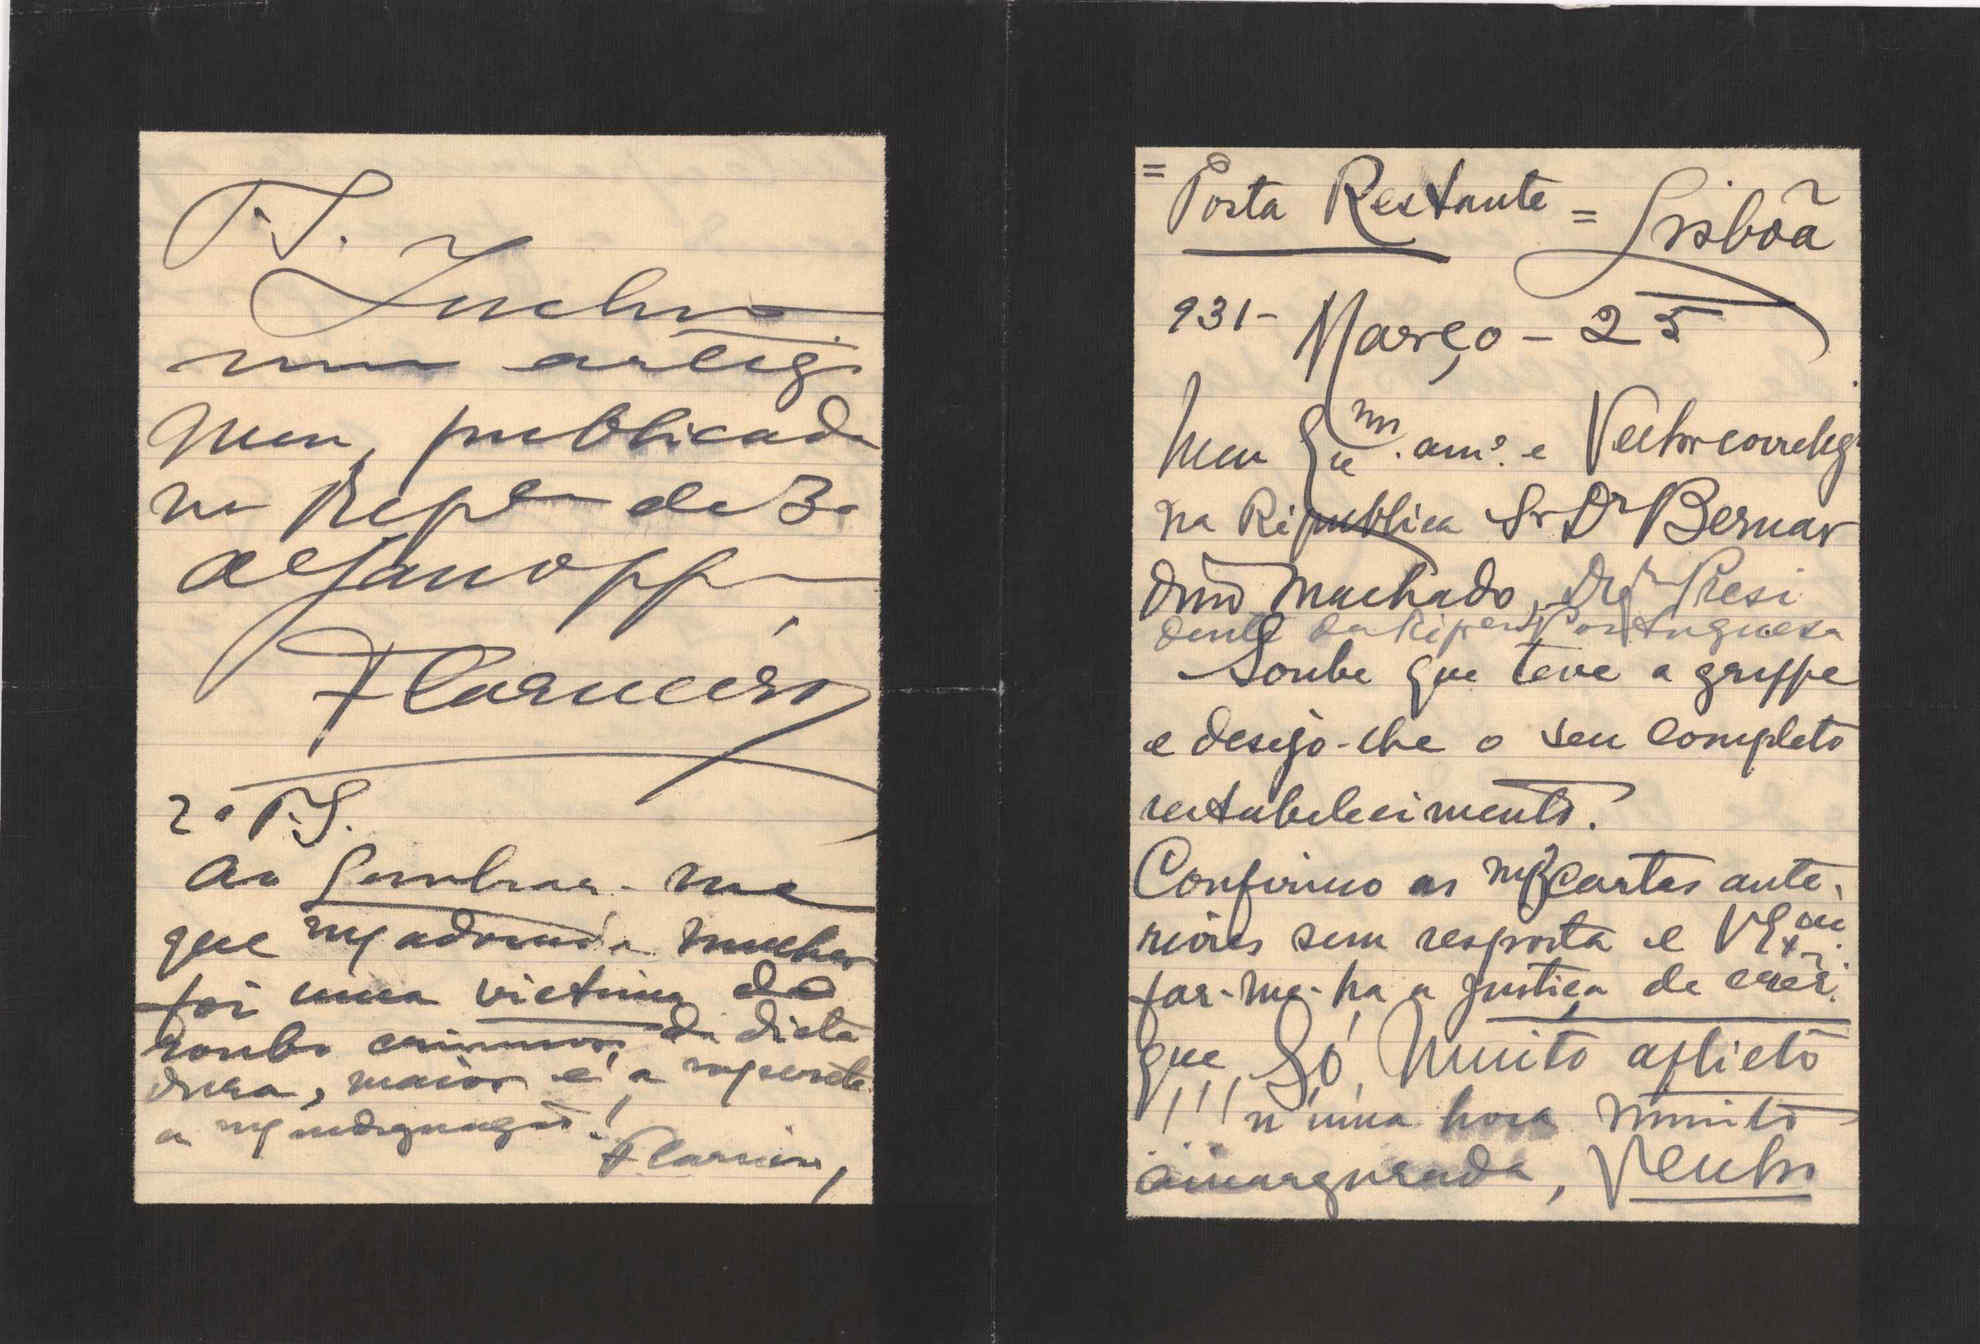 P.S.
Inclu
um artigo
meu, publicado
na Repca de 30
de Jan opp
2º P.S.
Ao lembrar-me
que mª adorada mulher
foi uma victima do
roubo criminoso da dicta
dura, maior é a
a mª indignação!
= Posta Restante = Lisbôa
931- Março - 25
Meu Qu.mo am.º e Velho correlig
na Republica Sr Dr Bernar
dino Machado, Dig.mo Presi
dente da Repca Portuguesa
Soube que teve a grippe
e desejo-lhe o seu completo
restabelecimento.
Confirmo as mas cartas ante-
riores sem resposta e V Exª
far-me-ha a justiça de crêr
que Só, Muito aflicto
!!! n'uma hora muito
amargurada, Venho